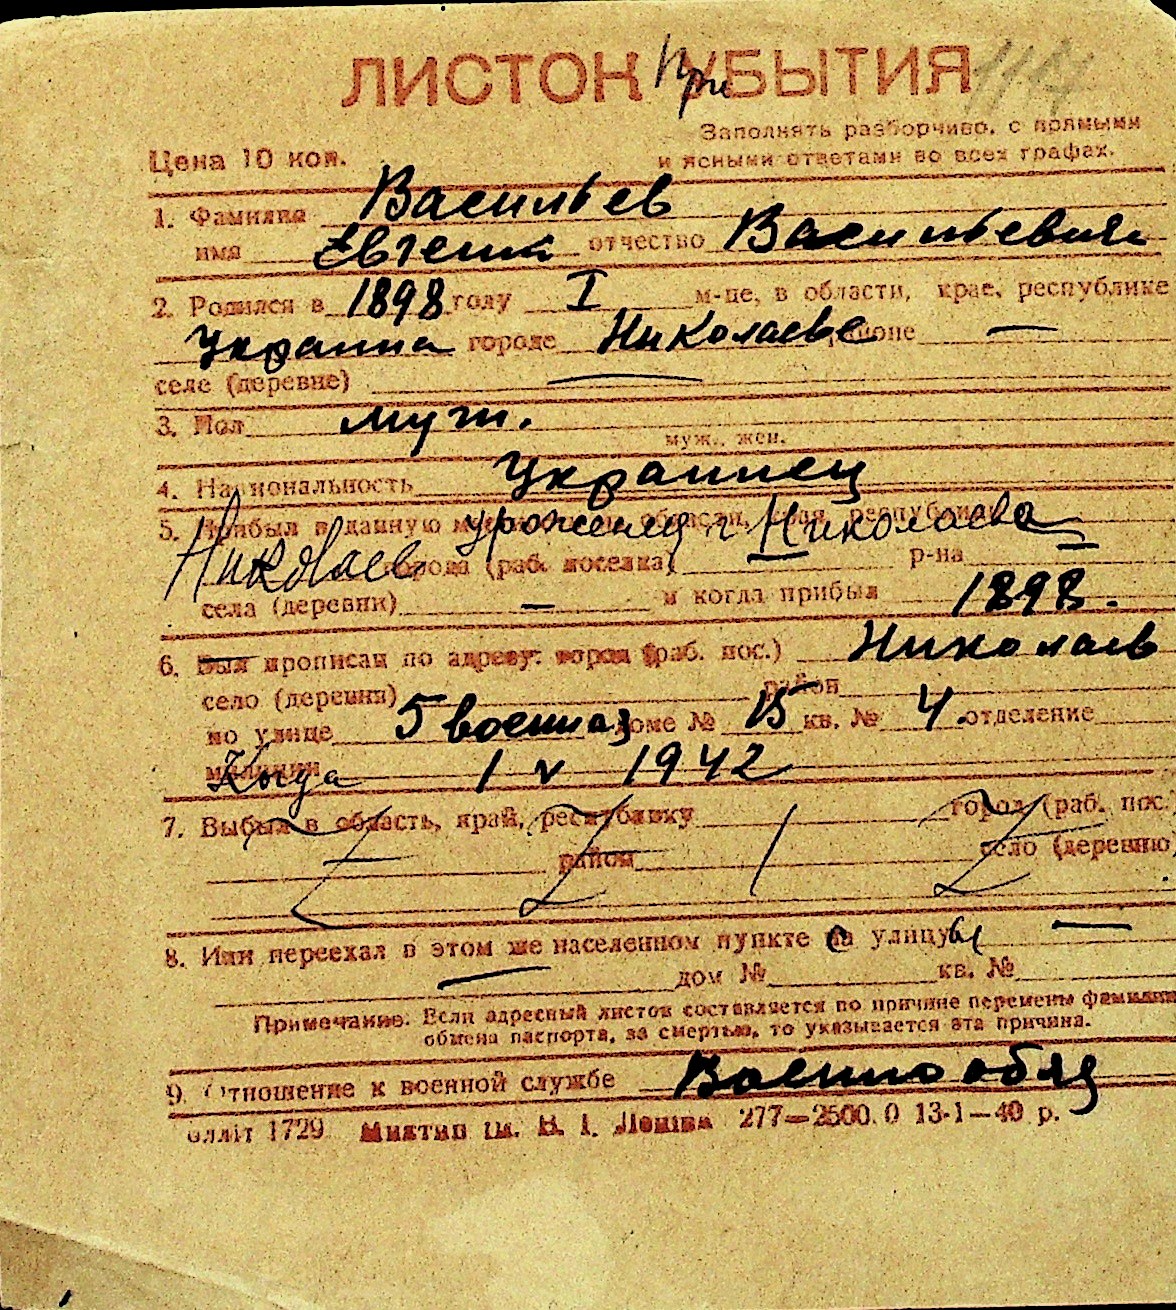 ЛИСТОК УБЫТИЯ При
Заполнять разборчиво, с прямыми
Цена 10 коп. и ясными ответами во всех графах.
1. Фамилия Васильев
имя Евгений отчество Васильевич
2. Родился в 1898 году I м-це, в области, крае, республике
Украина городе Николаеве районе —
селе (деревне) —
3. Пол муж.
муж., жен.
4. Национальность Украинец
5. Прибыл в данную области, края, республики уроженец г. Николаева
Николаев города (раб. поселка) р-на
села (деревни) — и когда прибыл 1898.
6. Был прописан по адресу: город (раб. пос.) Николаев
село (деревня) район
по улице 5 военная доме № 15 кв. № 4. отделение
милиции Когда 1 V 1942
7. Выбыл в область, край, республику город (раб. пос.
район село (деревню
8. Или переехал в этом же населенном пункте на улицу ы —
— дом № кв. №
Примечание: Если адресный листок составляется по причине перемены фамилии
обмена паспорта, за смертью, то указывается эта причина.
9. Отношение к военной службе Военнообяз
лліт 1729 277—2500.0 13-1—40 р.